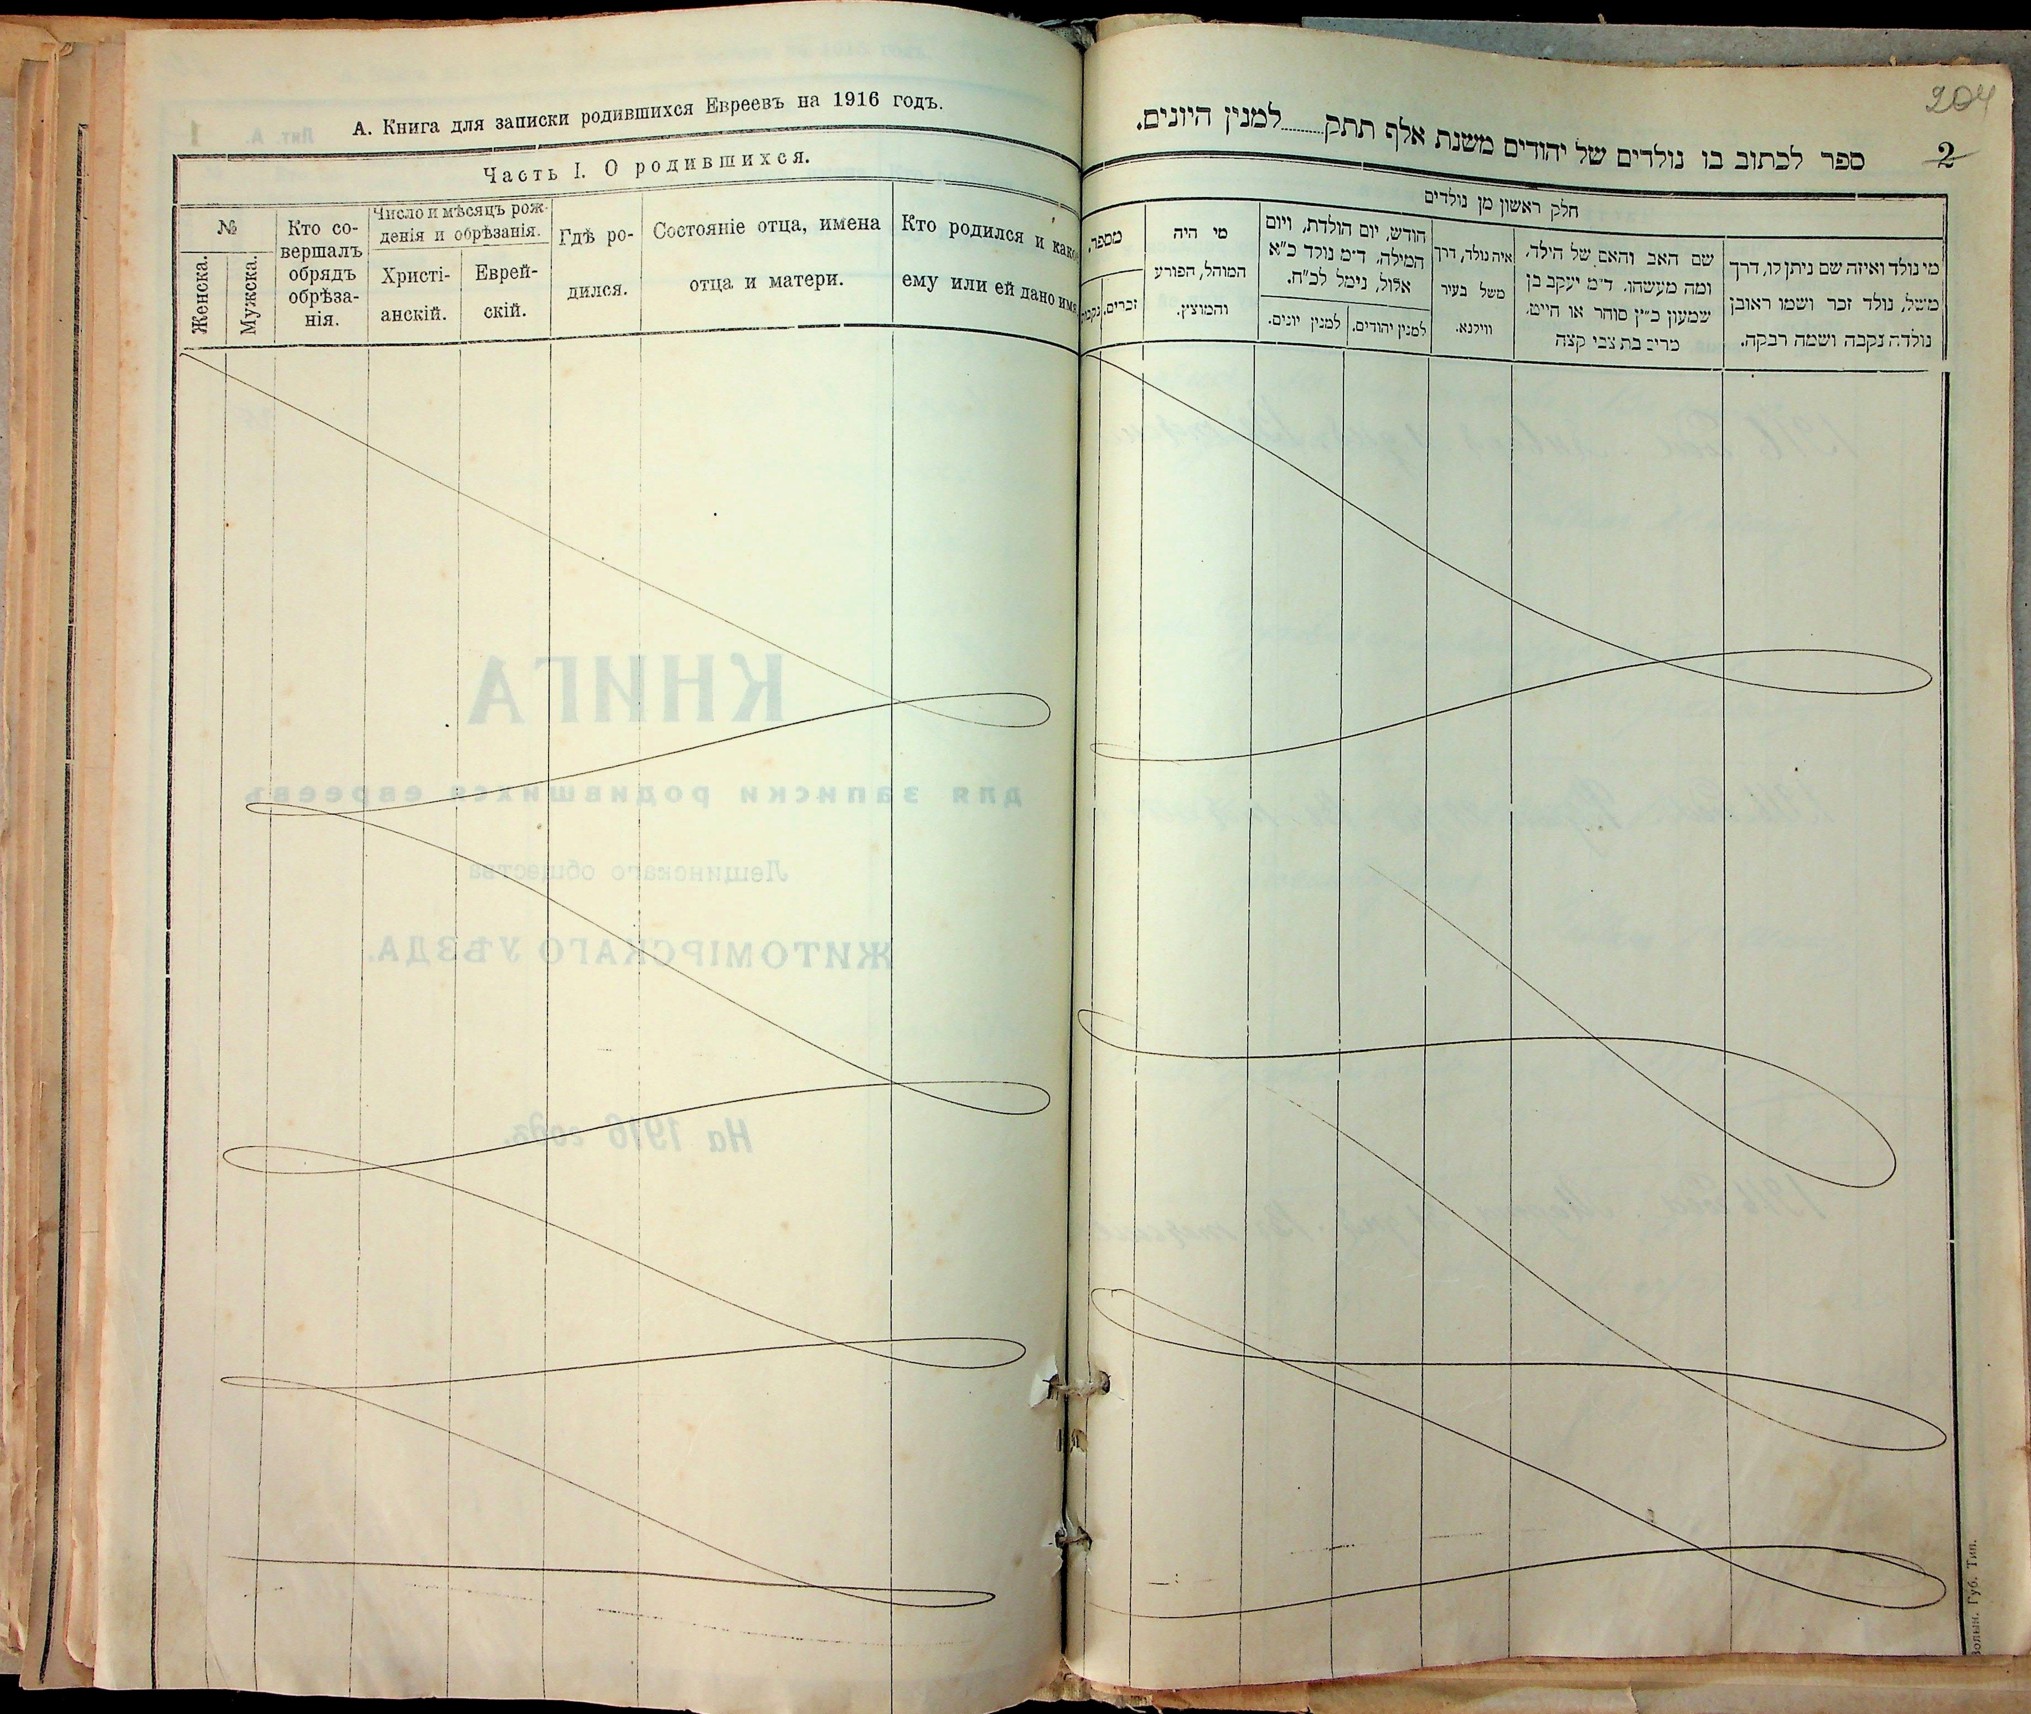 А. Книга для записки родившихся Евреевъ на 1916 годъ.
Часть I. О родившихся.
№
Женска.
Мужска.
Кто со-
вершалъ
обрядъ
обрѣза-
нія.
Число и мѣсяцъ рож-
денія и обрѣзанія.
Христі-
анскій.
Еврей-
скій.
Гдѣ ро-
дился.
Состояніе отца, имена
отца и матери.
Кто родился и како
ему или ей дано имя
КНИГА
для записки родившихся евреевъ
Лещинскаго общества
ЖИТОМІРСКАГО УѢЗДА.
На 1916 годъ.
Лит. А.
1
204
2
ספר לכתוב בו נולדים של יהודים משנת אלף תתק......למנין היונים.
חלק ראשון מן נולדים
מספר.
זכרים.
מי היה
המוהל, הפורע
והמוצץ.
חודש, יום הולדת, ויום
המילה, ד״מ נולד כ״א
אלול, נימל לכ״ח.
למנין יונים.
למנין יהודים.
איה נולד, דרך
משל בעיר
ווילנא.
שם האב והאם של הילד,
ומה מעשהו, ד״מ יעקב בן
שמעון כ״ץ סוחר או חייט,
מרים בת צבי קצה
מי נולד ואיזה שם ניתן לו, דרך
משל, נולד זכר ושמו ראובן
נולדה נקבה ושמה רבקה.
Волын. Губ. Тип.